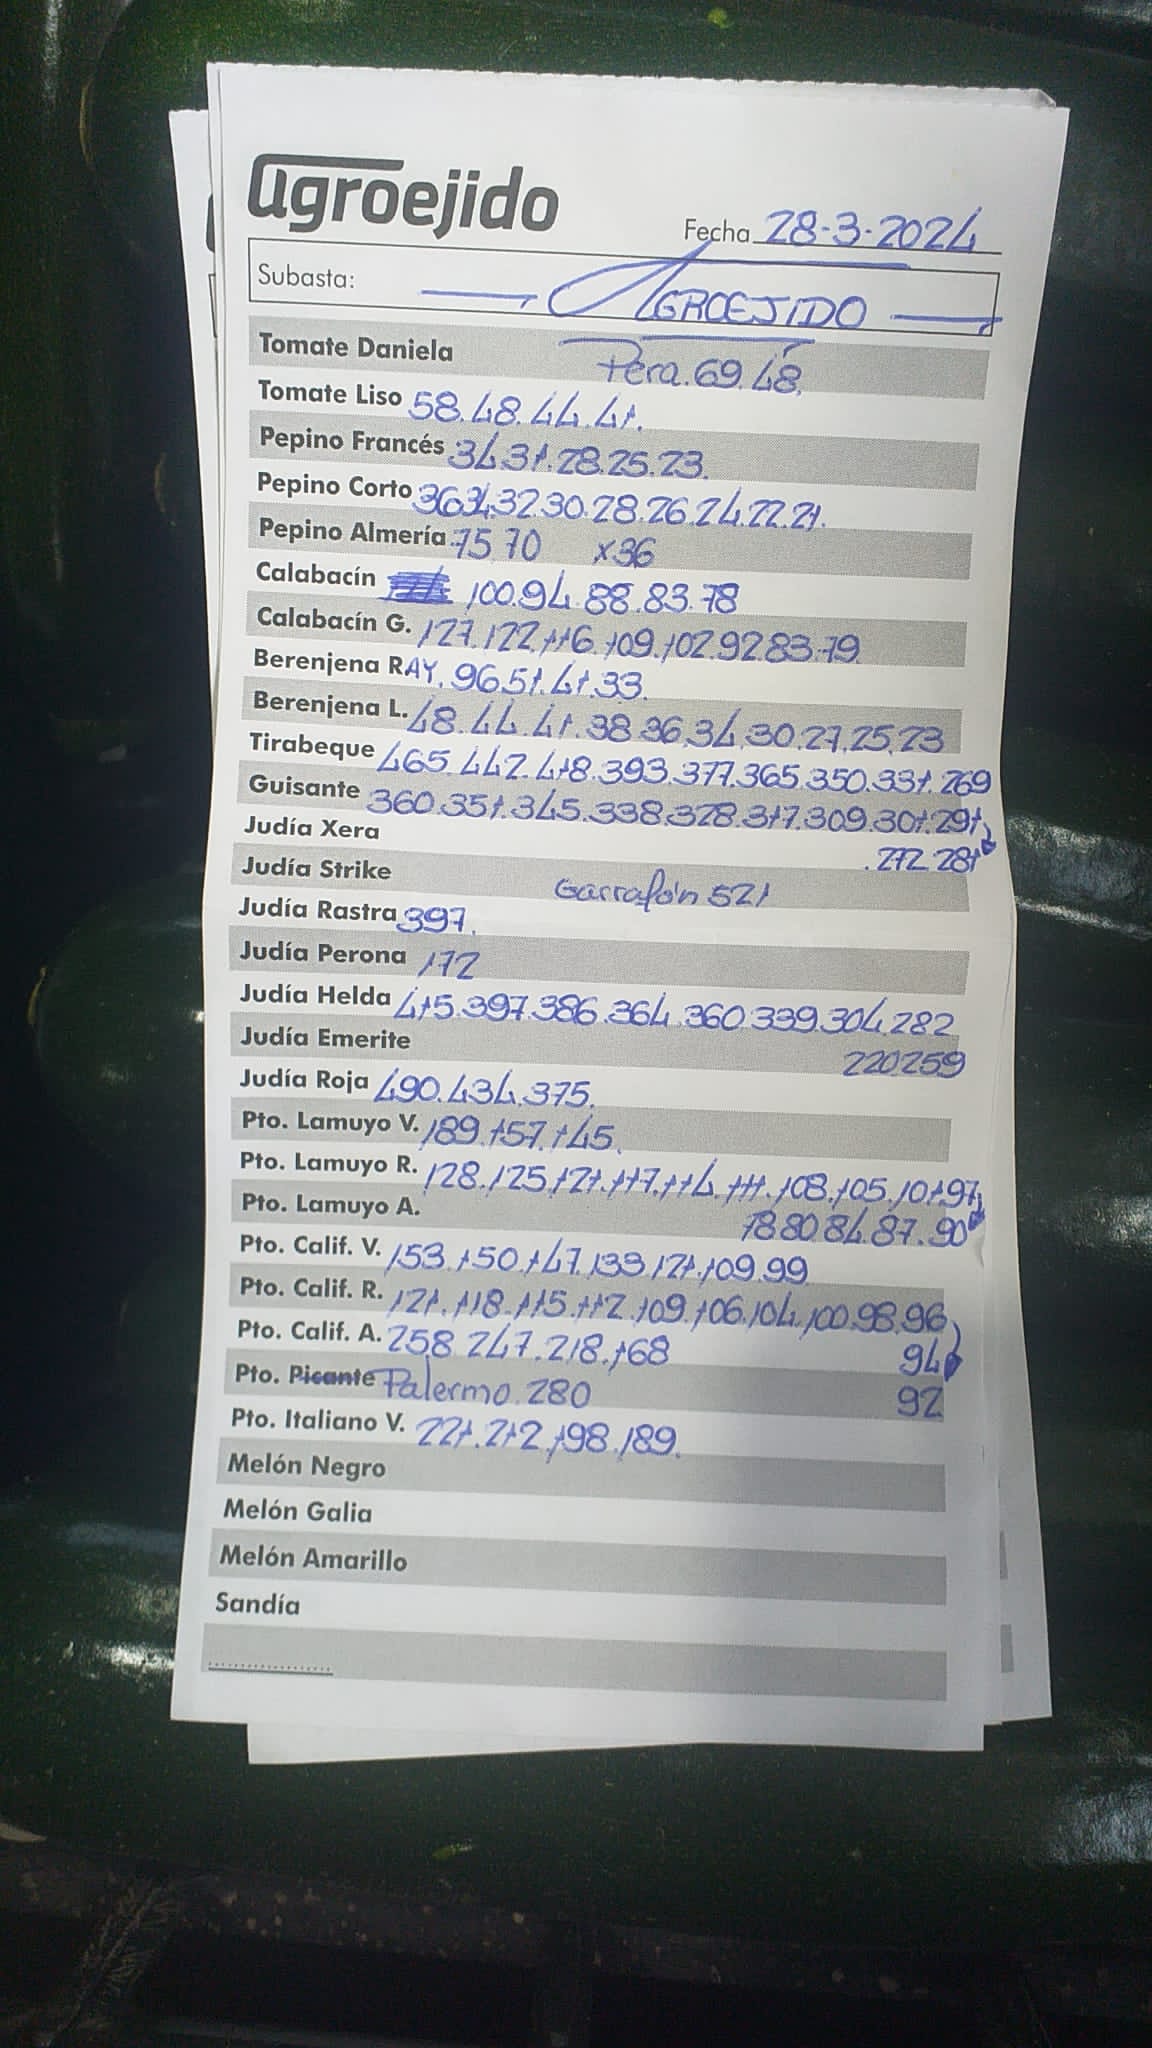 agroejido
Fecha 28-3-2024
Subasta: AGROEJIDO
Tomate Daniela Pera.69.48.
Tomate Liso 58.48.44.41.
Pepino Francés 34.31.28.25.23.
Pepino Corto 36.34.32.30.28.26.24.22.21.
Pepino Almería 75.70 x36
Calabacín 100.94.88.83.78
Calabacín G. 127.122.116.109.102.92.83.79.
Berenjena RAY. 96.51.41.33.
Berenjena L. 48.44.41.38.36.34.30.27.25.23
Tirabeque 465.442.418.393.377.365.350.331.269
Guisante 360.351.345.338.328.317.309.301.291
Judía Xera .272.281
Judía Strike Garrafón 521
Judía Rastra 397.
Judía Perona 172
Judía Helda 415.397.386.364.360.339.304.282
Judía Emerite 220.259
Judía Roja 490.434.375.
Pto. Lamuyo V. 189.157.145.
Pto. Lamuyo R. 128.125.121.117.114.111.108.105.101.97
Pto. Lamuyo A. 78.80.84.87.90
Pto. Calif. V. 153.150.147.133.121.109.99
Pto. Calif. R. 121.118.115.112.109.106.104.100.98.96
Pto. Calif. A. 258.247.218.168 94
Pto. Picante Palermo.280 92
Pto. Italiano V. 221.212.198.189.
Melón Negro
Melón Galia
Melón Amarillo
Sandía